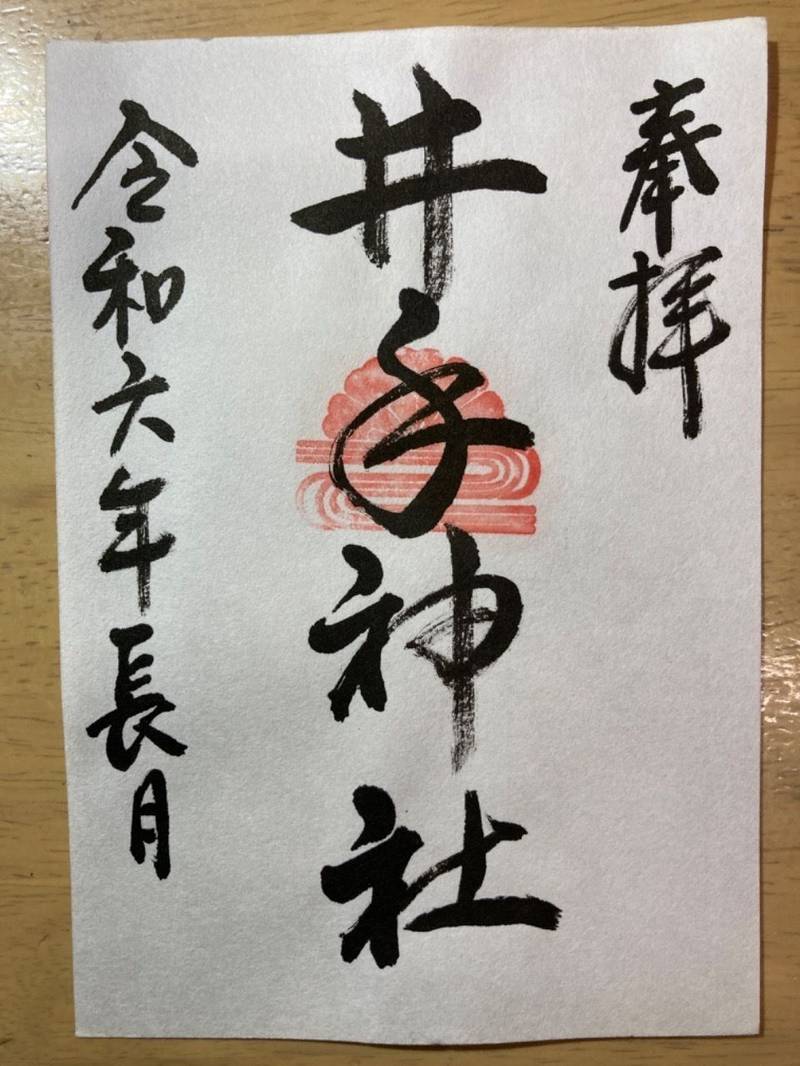 奉拝
井手神社
令和六年長月